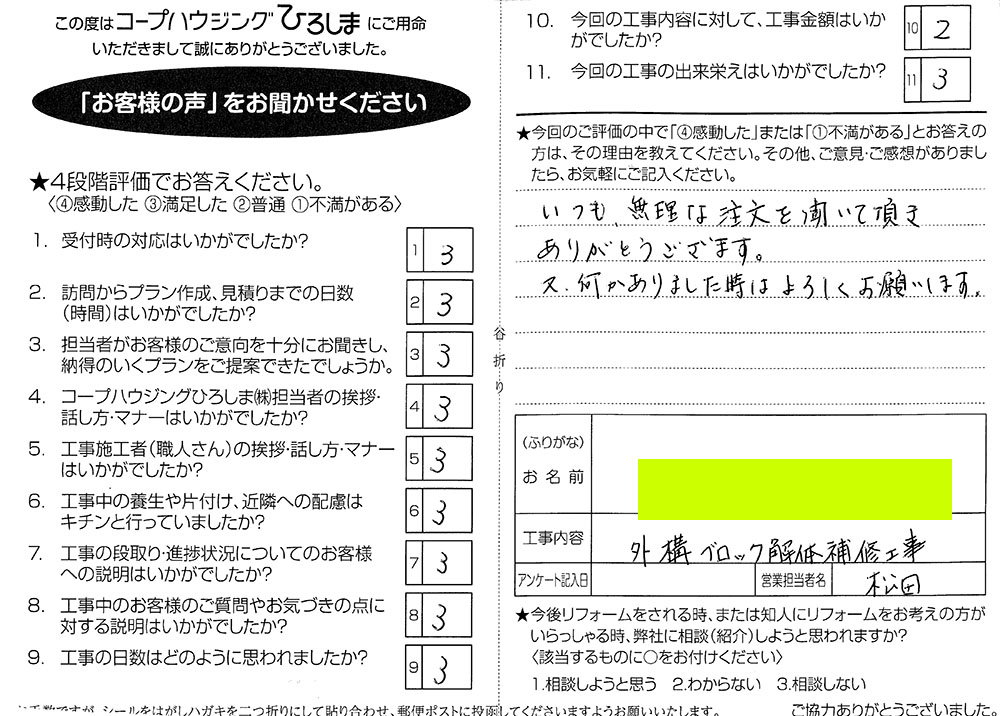 この度はコープハウジングひろしまにご用命
いただきまして誠にありがとうございました。
「お客様の声」をお聞かせください
★4段階評価でお答えください。
〈④感動した ③満足した ②普通 ①不満がある〉
1. 受付時の対応はいかがでしたか?
1 3
2. 訪問からプラン作成、見積りまでの日数
(時間)はいかがでしたか?
2 3
3. 担当者がお客様のご意向を十分にお聞きし、
納得のいくプランをご提案できたでしょうか。
3 3
4. コープハウジングひろしま㈱担当者の挨拶・
話し方・マナーはいかがでしたか?
4 3
5. 工事施工者(職人さん)の挨拶・話し方・マナー
はいかがでしたか?
5 3
6. 工事中の養生や片付け、近隣への配慮は
キチンと行っていましたか?
6 3
7. 工事の段取り・進捗状況についてのお客様
への説明はいかがでしたか?
7 3
8. 工事中のお客様のご質問やお気づきの点に
対する説明はいかがでしたか?
8 3
9. 工事の日数はどのように思われましたか?
9 3
お手数ですが、シールをはがしハガキを二つ折りにして貼り合わせ、郵便ポストに投函してくださいますようお願いいたします。
谷折り
10. 今回の工事内容に対して、工事金額はいか
がでしたか?
10 2
11. 今回の工事の出来栄えはいかがでしたか?
11 3
★今回のご評価の中で「④感動した」または「①不満がある」とお答えの
方は、その理由を教えてください。その他、ご意見・ご感想がありまし
たら、お気軽にご記入ください。
いつも、無理な注文を聞いて頂き
ありがとうございます。
又、何かありました時はよろしくお願いします。
(ふりがな)
お名前
工事内容 外構ブロック解体補修工事
アンケート記入日 営業担当者名 松田
★今後リフォームをされる時、または知人にリフォームをお考えの方が
いらっしゃる時、弊社に相談(紹介)しようと思われますか?
〈該当するものに○をお付けください〉
1.相談しようと思う 2.わからない 3.相談しない
ご協力ありがとうございました。